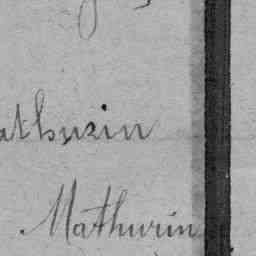 athurin
Mathurin